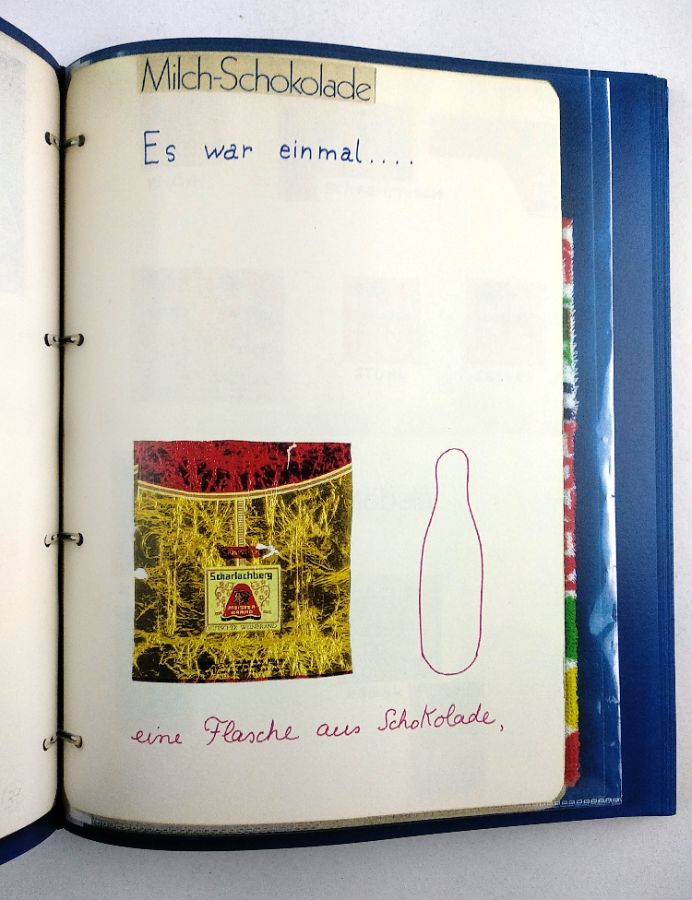 Milch-Schokolade
Es war einmal....
Scharlachberg
MEISTER
BRAND
DEUTSCHER WEINBRAND
eine Flasche aus Schokolade,